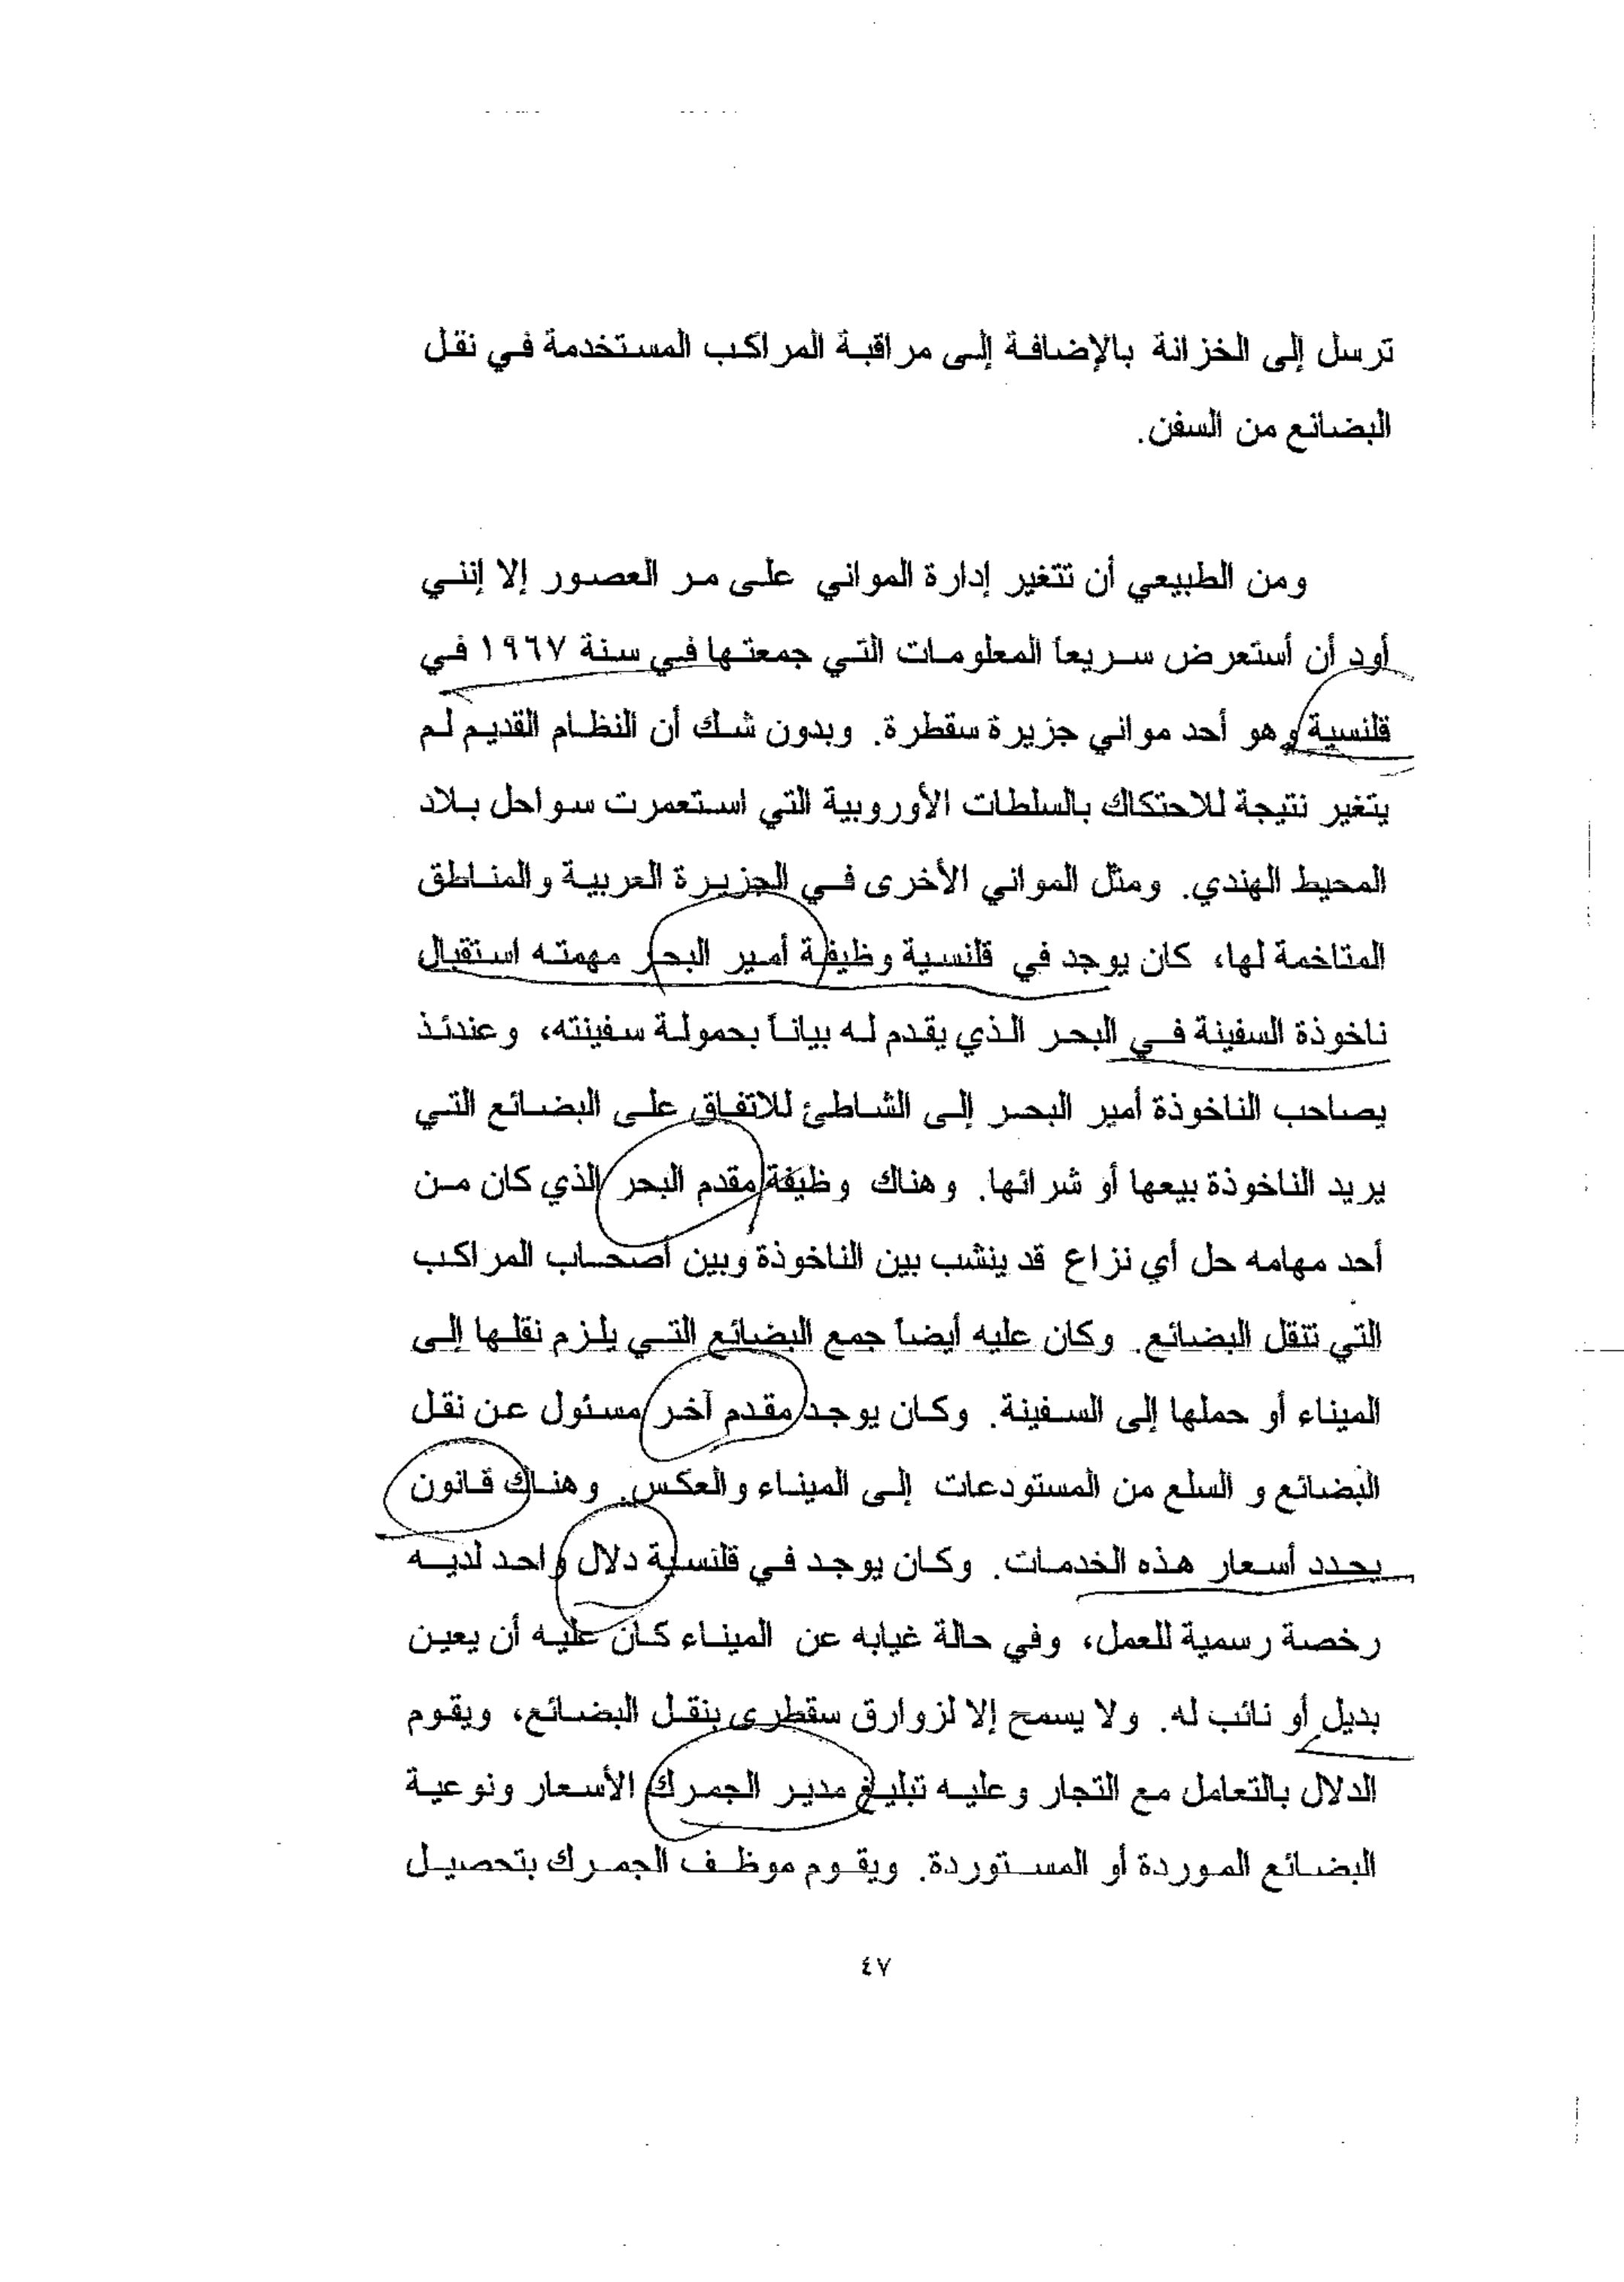 ترسل إلى الخزانة بالإضافة إلى مراقبة المراكب المستخدمة في نقل
البضائع من السفن.
ومن الطبيعي أن تتغير إدارة المواني على مر العصور إلا إنني
أود أن أستعرض سريعاً المعلومات التي جمعتها في سنة ١٩٦٧ في
قلنسية وهو أحد مواني جزيرة سقطرة. وبدون شك أن النظام القديم لم
يتغير نتيجة للاحتكاك بالسلطات الأوروبية التي استعمرت سواحل بلاد
المحيط الهندي. ومثل المواني الأخرى في الجزيرة العربية والمناطق
المتاخمة لها، كان يوجد في قلنسية وظيفة أمير البحر مهمته استقبال
ناخوذة السفينة في البحر الذي يقدم له بياناً بحمولة سفينته، وعندئذ
يصاحب الناخوذة أمير البحر إلى الشاطئ للاتفاق على البضائع التي
يريد الناخوذة بيعها أو شرائها. وهناك وظيفة مقدم البحر الذي كان من
أحد مهامه حل أي نزاع قد ينشب بين الناخوذة وبين أصحاب المراكب
التي تنقل البضائع. وكان عليه أيضاً جمع البضائع التي يلزم نقلها إلى
الميناء أو حملها إلى السفينة. وكان يوجد مقدم آخر مسئول عن نقل
البضائع و السلع من المستودعات إلى الميناء والعكس. وهناك قانون
يحدد أسعار هذه الخدمات. وكان يوجد في قلنسية دلال واحد لديه
رخصة رسمية للعمل، وفي حالة غيابه عن الميناء كان عليه أن يعين
بديل أو نائب له. ولا يسمح إلا لزوارق سقطرى بنقل البضائع، ويقوم
الدلال بالتعامل مع التجار وعليه تبليغ مدير الجمرك الأسعار ونوعية
البضائع الموردة أو المستوردة. ويقوم موظف الجمرك بتحصيل
٤٧